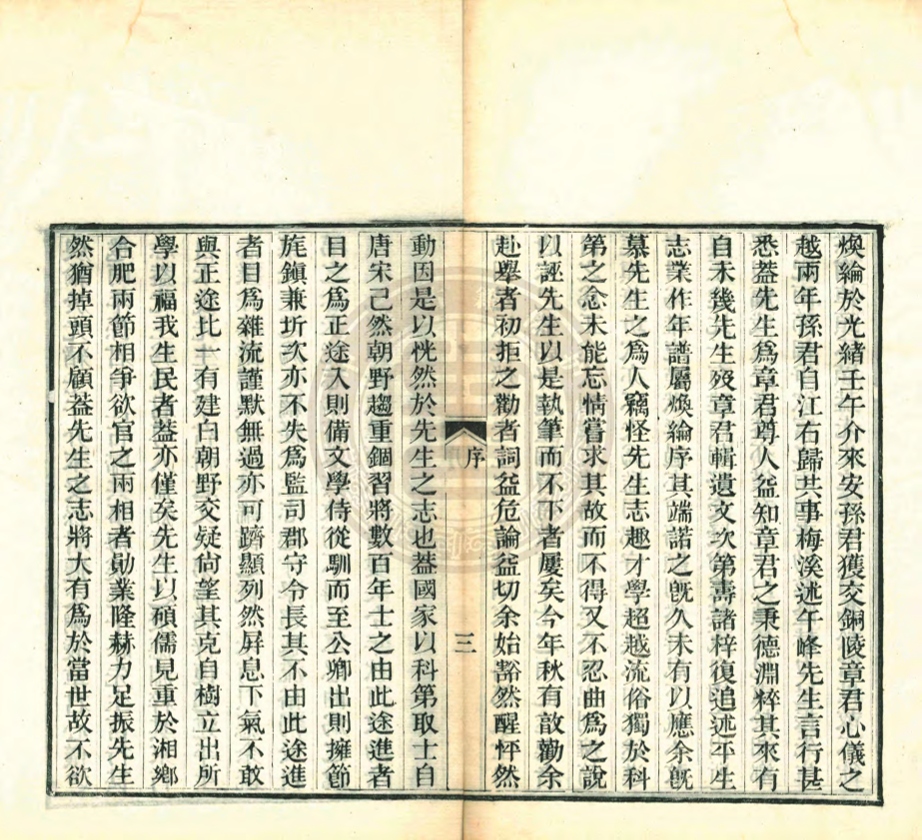 煥綸於光緒壬午介來安孫君獲交銅陵章君心儀之
越兩年孫君自江右歸共事梅溪述午峰先生言行甚
悉葢先生爲章君尊人益知章君之秉德淵粹其來有
自未幾先生歿章君輯遺文次第壽諸梓復追述平生
志業作年譜屬煥綸序其端諾之旣久未有以應余旣
慕先生之爲人竊怪先生志趣才學超越流俗獨於科
第之念未能忘情嘗求其故而不得又不忍曲爲之說
以誣先生以是執筆而不下者屢矣今年秋有敦勸余
赴舉者初拒之勸者詞益危論益切余始豁然醒怦然
序
三
動因是以恍然於先生之志也葢國家以科第取士自
唐宋已然朝野趨重錮習將數百年士之由此途進者
目之爲正途入則備文學侍從馴而至公卿出則擁節
旄鎮兼圻次亦不失爲監司郡守令長其不由此途進
者目爲雜流謹默無過亦可躋顯列然屏息下氣不敢
與正途比一有建白朝野交疑尙望其克自樹立出所
學以福我生民者葢亦僅矣先生以碩儒見重於湘鄉
合肥兩節相爭欲官之兩相者勛業隆赫力足振先生
然猶掉頭不顧葢先生之志將大有爲於當世故不欲